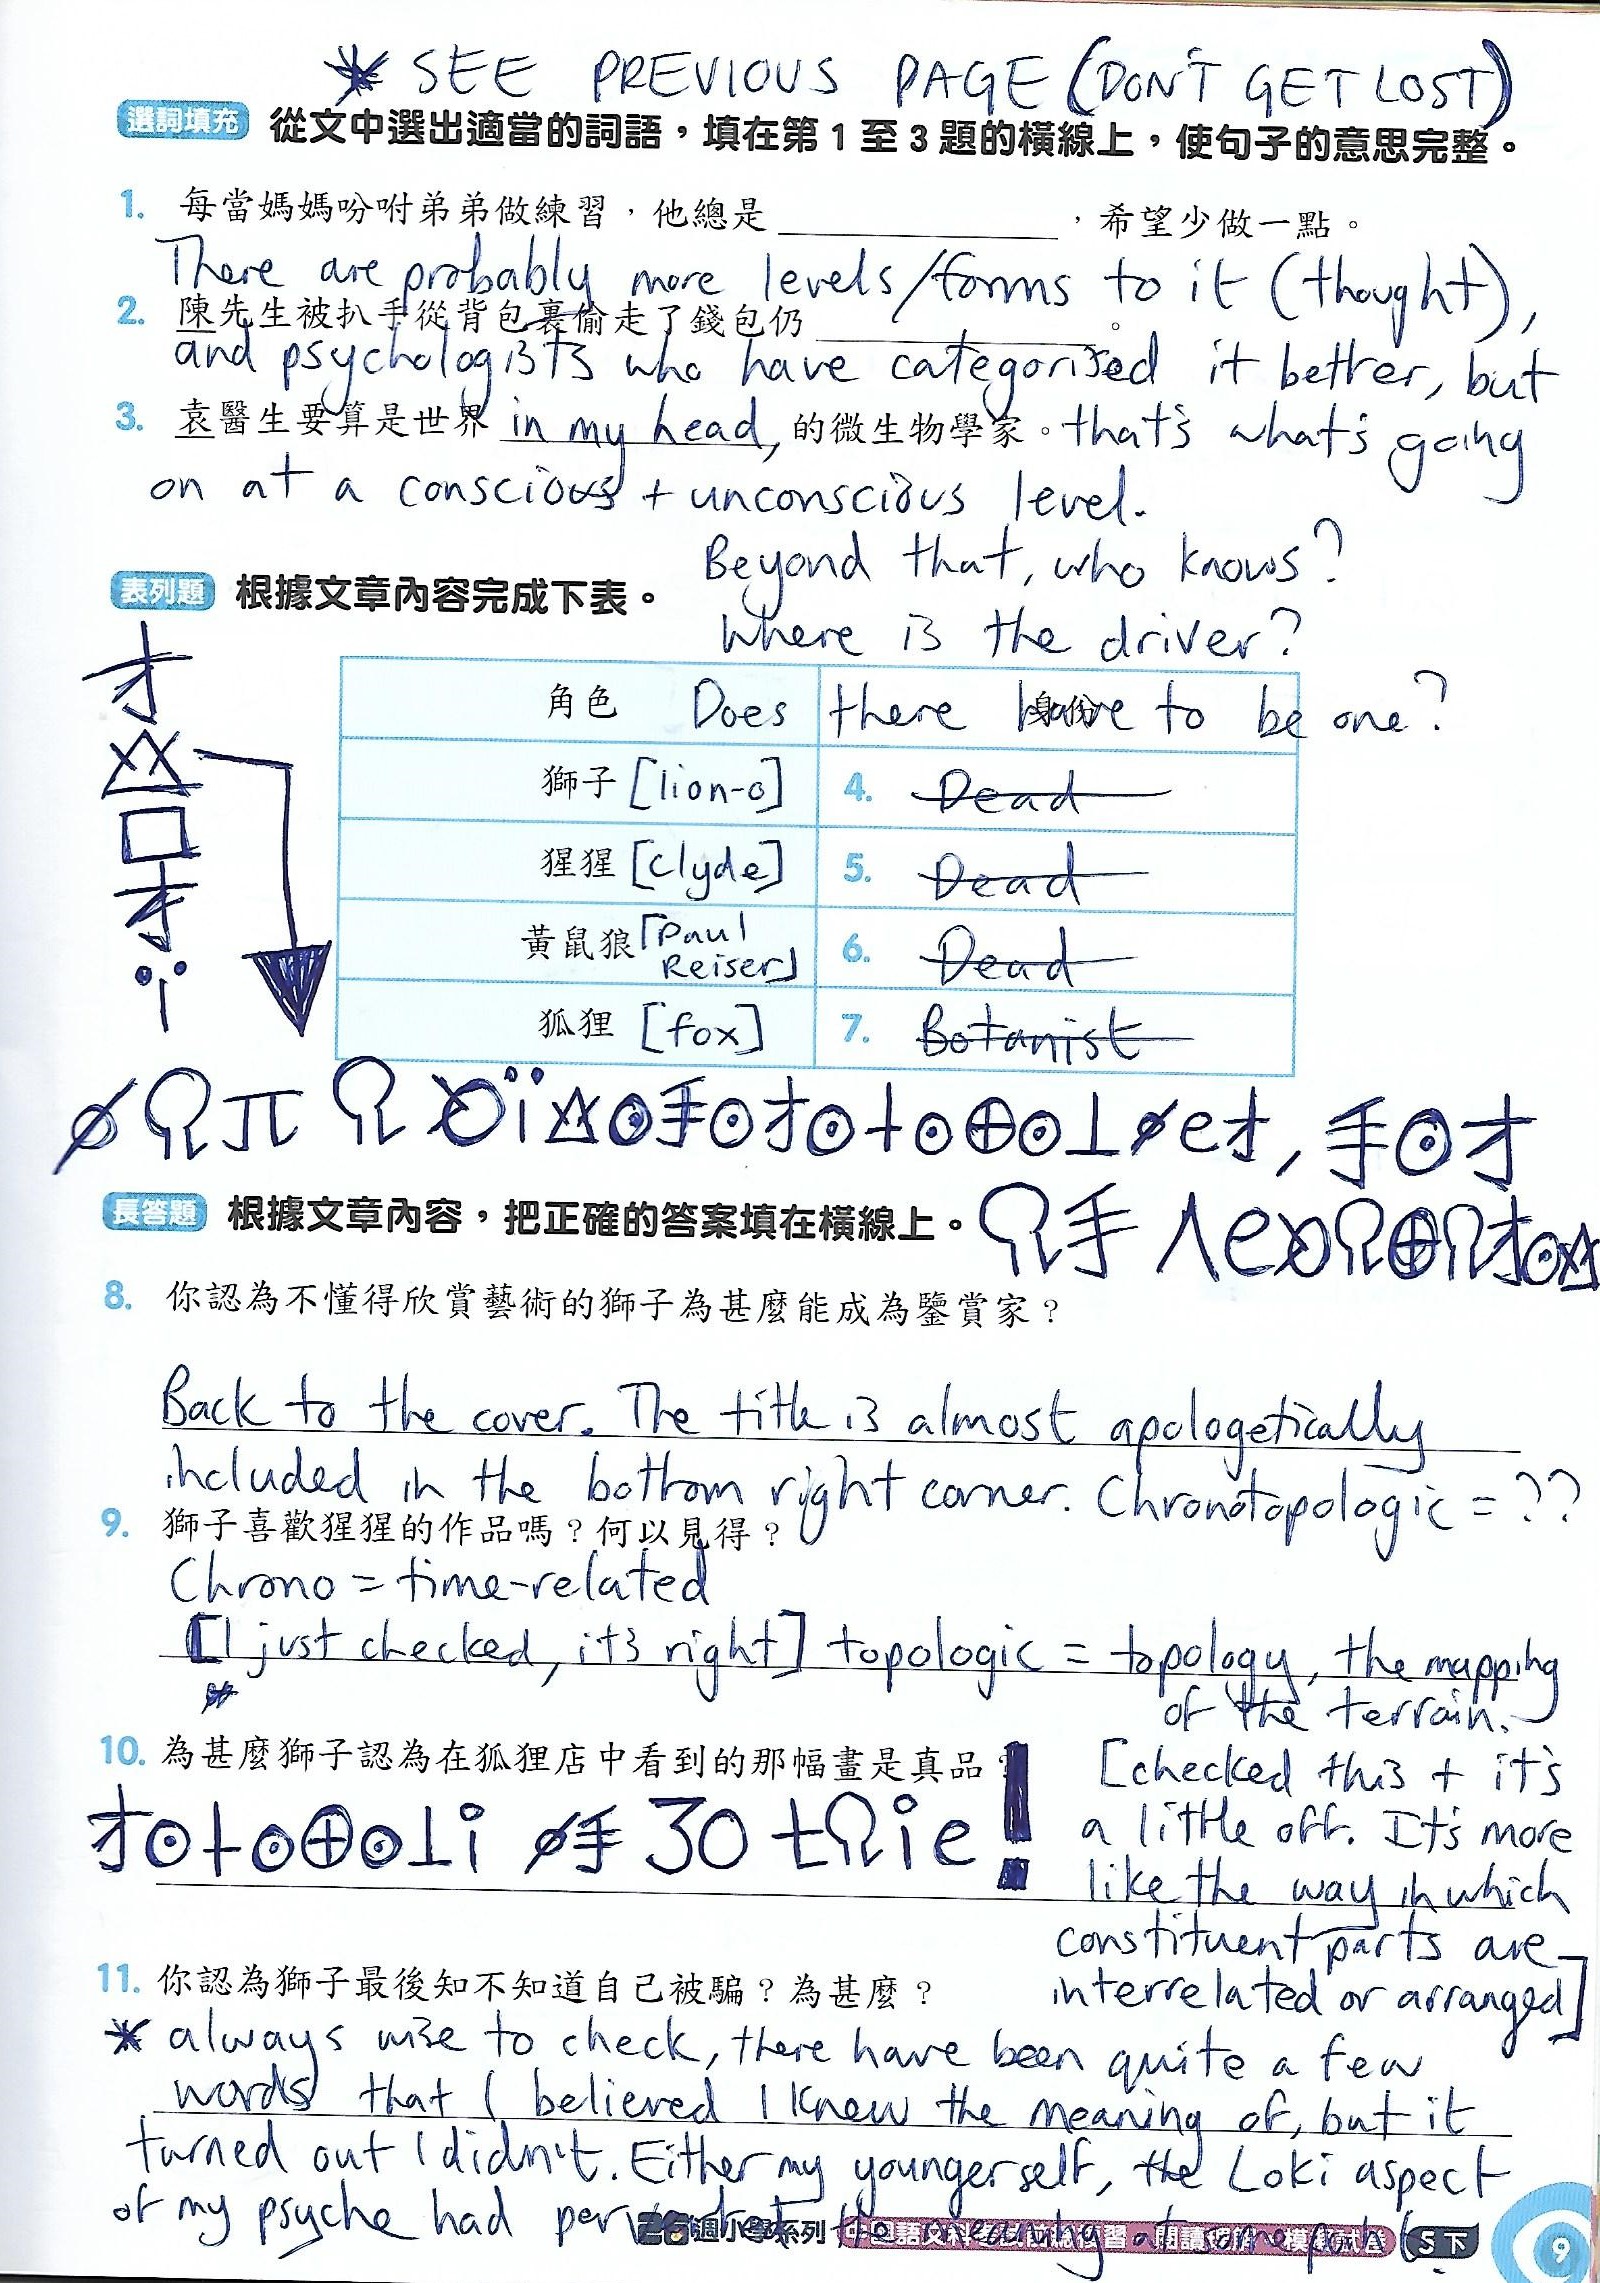 * SEE PREVIOUS PAGE (DON'T GET LOST)
選詞填充 從文中選出適當的詞語，填在第 1 至 3 題的橫線上，使句子的意思完整。
1. 每當媽媽吩咐弟弟做練習，他總是 ，希望少做一點。
There are probably more levels/forms to it (thought),
2. 陳先生被扒手從背包裏偷走了錢包仍 。
and psychologists who have categorised it better, but
3. 袁醫生要算是世界 in my head, 的微生物學家。that's what's going
on at a conscious + unconscious level.
Beyond that, who knows?
表列題 根據文章內容完成下表。
Where is the driver?
角色 Does there have to be one?
身份
獅子 [lion-o] 4. Dead
猩猩 [Clyde] 5. Dead
黃鼠狼 [Paul Reiser] 6. Dead
狐狸 [fox] 7. Botanist
長答題 根據文章內容，把正確的答案填在橫線上。
8. 你認為不懂得欣賞藝術的獅子為甚麼能成為鑒賞家？
Back to the cover. The title is almost apologetically
included in the bottom right corner. Chronotopologic = ??
9. 獅子喜歡猩猩的作品嗎？何以見得？
Chrono = time-related
[I just checked, it's right] topologic = topology, the mapping
*
of the terrain.
10. 為甚麼獅子認為在狐狸店中看到的那幅畫是真品
[checked this + it's
a little off. It's more
like the way in which
constituent parts are
interrelated or arranged]
11. 你認為獅子最後知不知道自己被騙？為甚麼？
* always wise to check, there have been quite a few
words that I believed I knew the meaning of, but it
turned out I didn't. Either my younger self, the Loki aspect
of my psyche had perverted the meaning at some point.
26週小學系列 5下 9